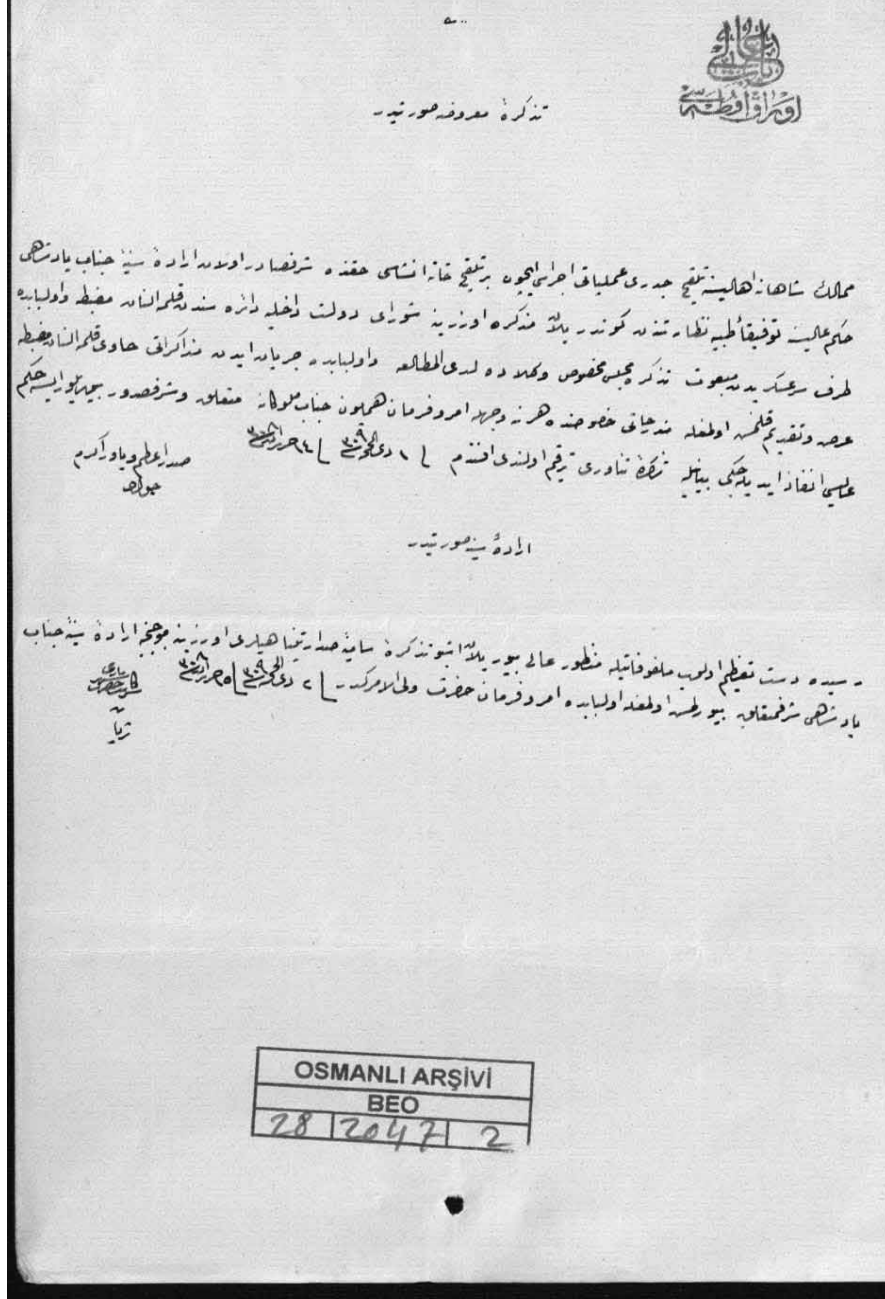 باب عالی
اوراق اوطه‌سی
تذكرۀ معروضه صورتیدر
ممالك شاهانه اهالیسنه تلقیح جدری عملیاتی اجراسی ایچون بر تلقیح خانه انشاسی حقنده شرفصادر اولان ارادۀ سنیۀ جناب پادشاهی
حكم عالیسنه توفیقاً طبیه نظارتندن كوندریلان مذكره اوزرینه شورای دولت داخلیه دائره سندن قلمه النان مضبطه و اولبابده
طرف سرعسكریدن مبعوث تذكره مجلس مخصوص وكلاده لدی المطالعه و اولبابده جریان ایدن مذاكراتی حاوی قلمه النان مضبطه
عرض و تقدیم قلنمش اولمغله مندرجاتی خصوصنده هر نه وجهله امر و فرمان همایون جناب ملوكانه متعلق و شرفصدور بیوریلور ایسه حكم
عالیسی انفاذ ایدیله‌جكی بیانیله تذكرۀ ثناوری ترقیم اولندی افندم فی ١ ذی الحجه سنه ٣٠٩ فی ١٤ حزیران سنه ٣٠٨
صدر اعظم و یاور اكرم
جواد
ارادۀ سنیه صورتیدر
رسیدۀ دست تعظیم اولوب ملفوفاتیله منظور عالی بیوریلان اشبو تذكرۀ سامیۀ صدارتپناهیلری اوزرینه موجبنجه ارادۀ سنیۀ جناب
پادشاهی شرفمتعلق بیورلمش اولمغله اولبابده امر و فرمان حضرت ولی الامركدر فی ٢ ذی الحجه سنه ٣٠٩ فی ١٥ حزیران سنه ٣٠٨
سركاتب حضرت شهریاری
ثریا
OSMANLI ARŞİVİ
BEO
28 2047 2